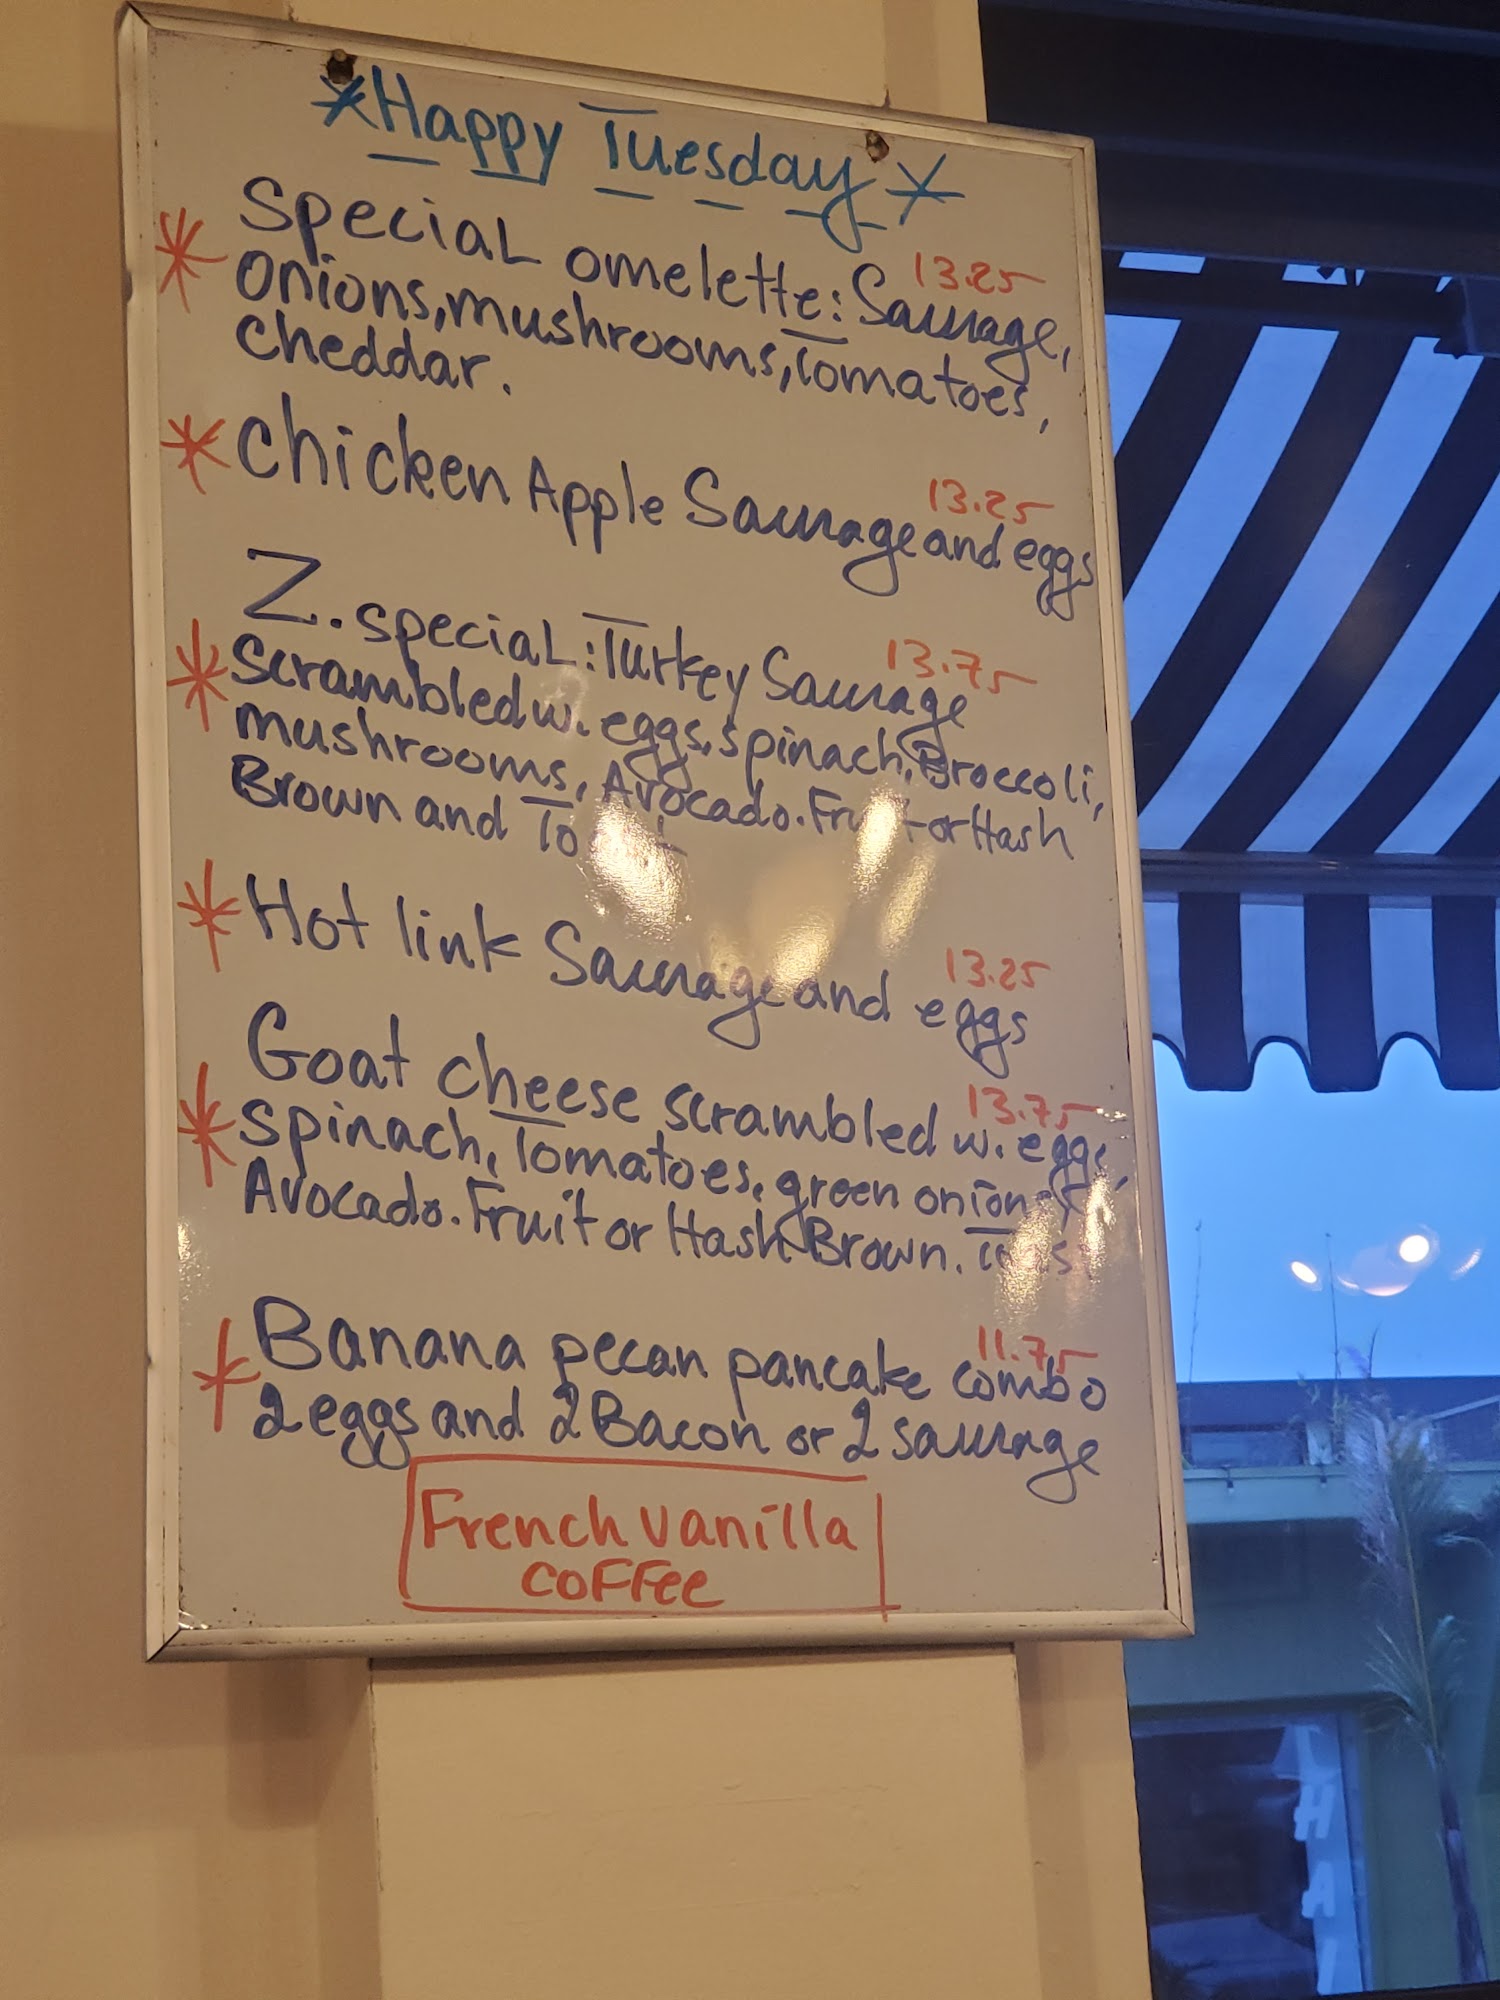 *Happy Tuesday*
Special omelette: Sausage, 13.25
onions, mushrooms, Tomatoes,
cheddar.
* Chicken Apple Sausage and eggs 13.25
Z. special: Turkey Sausage 13.75
* Scrambled w. eggs, spinach, Broccoli,
mushrooms, Avocado. Fruit or Hash
Brown and Toast
* Hot link Sausage and eggs 13.25
Goat cheese scrambled w. eggs, 13.75
* spinach, Tomatoes, green onions,
Avocado. Fruit or Hash Brown. Toast
* Banana pecan pancake combo 11.75
2 eggs and 2 Bacon or 2 sausage
French vanilla
coffee
THAI